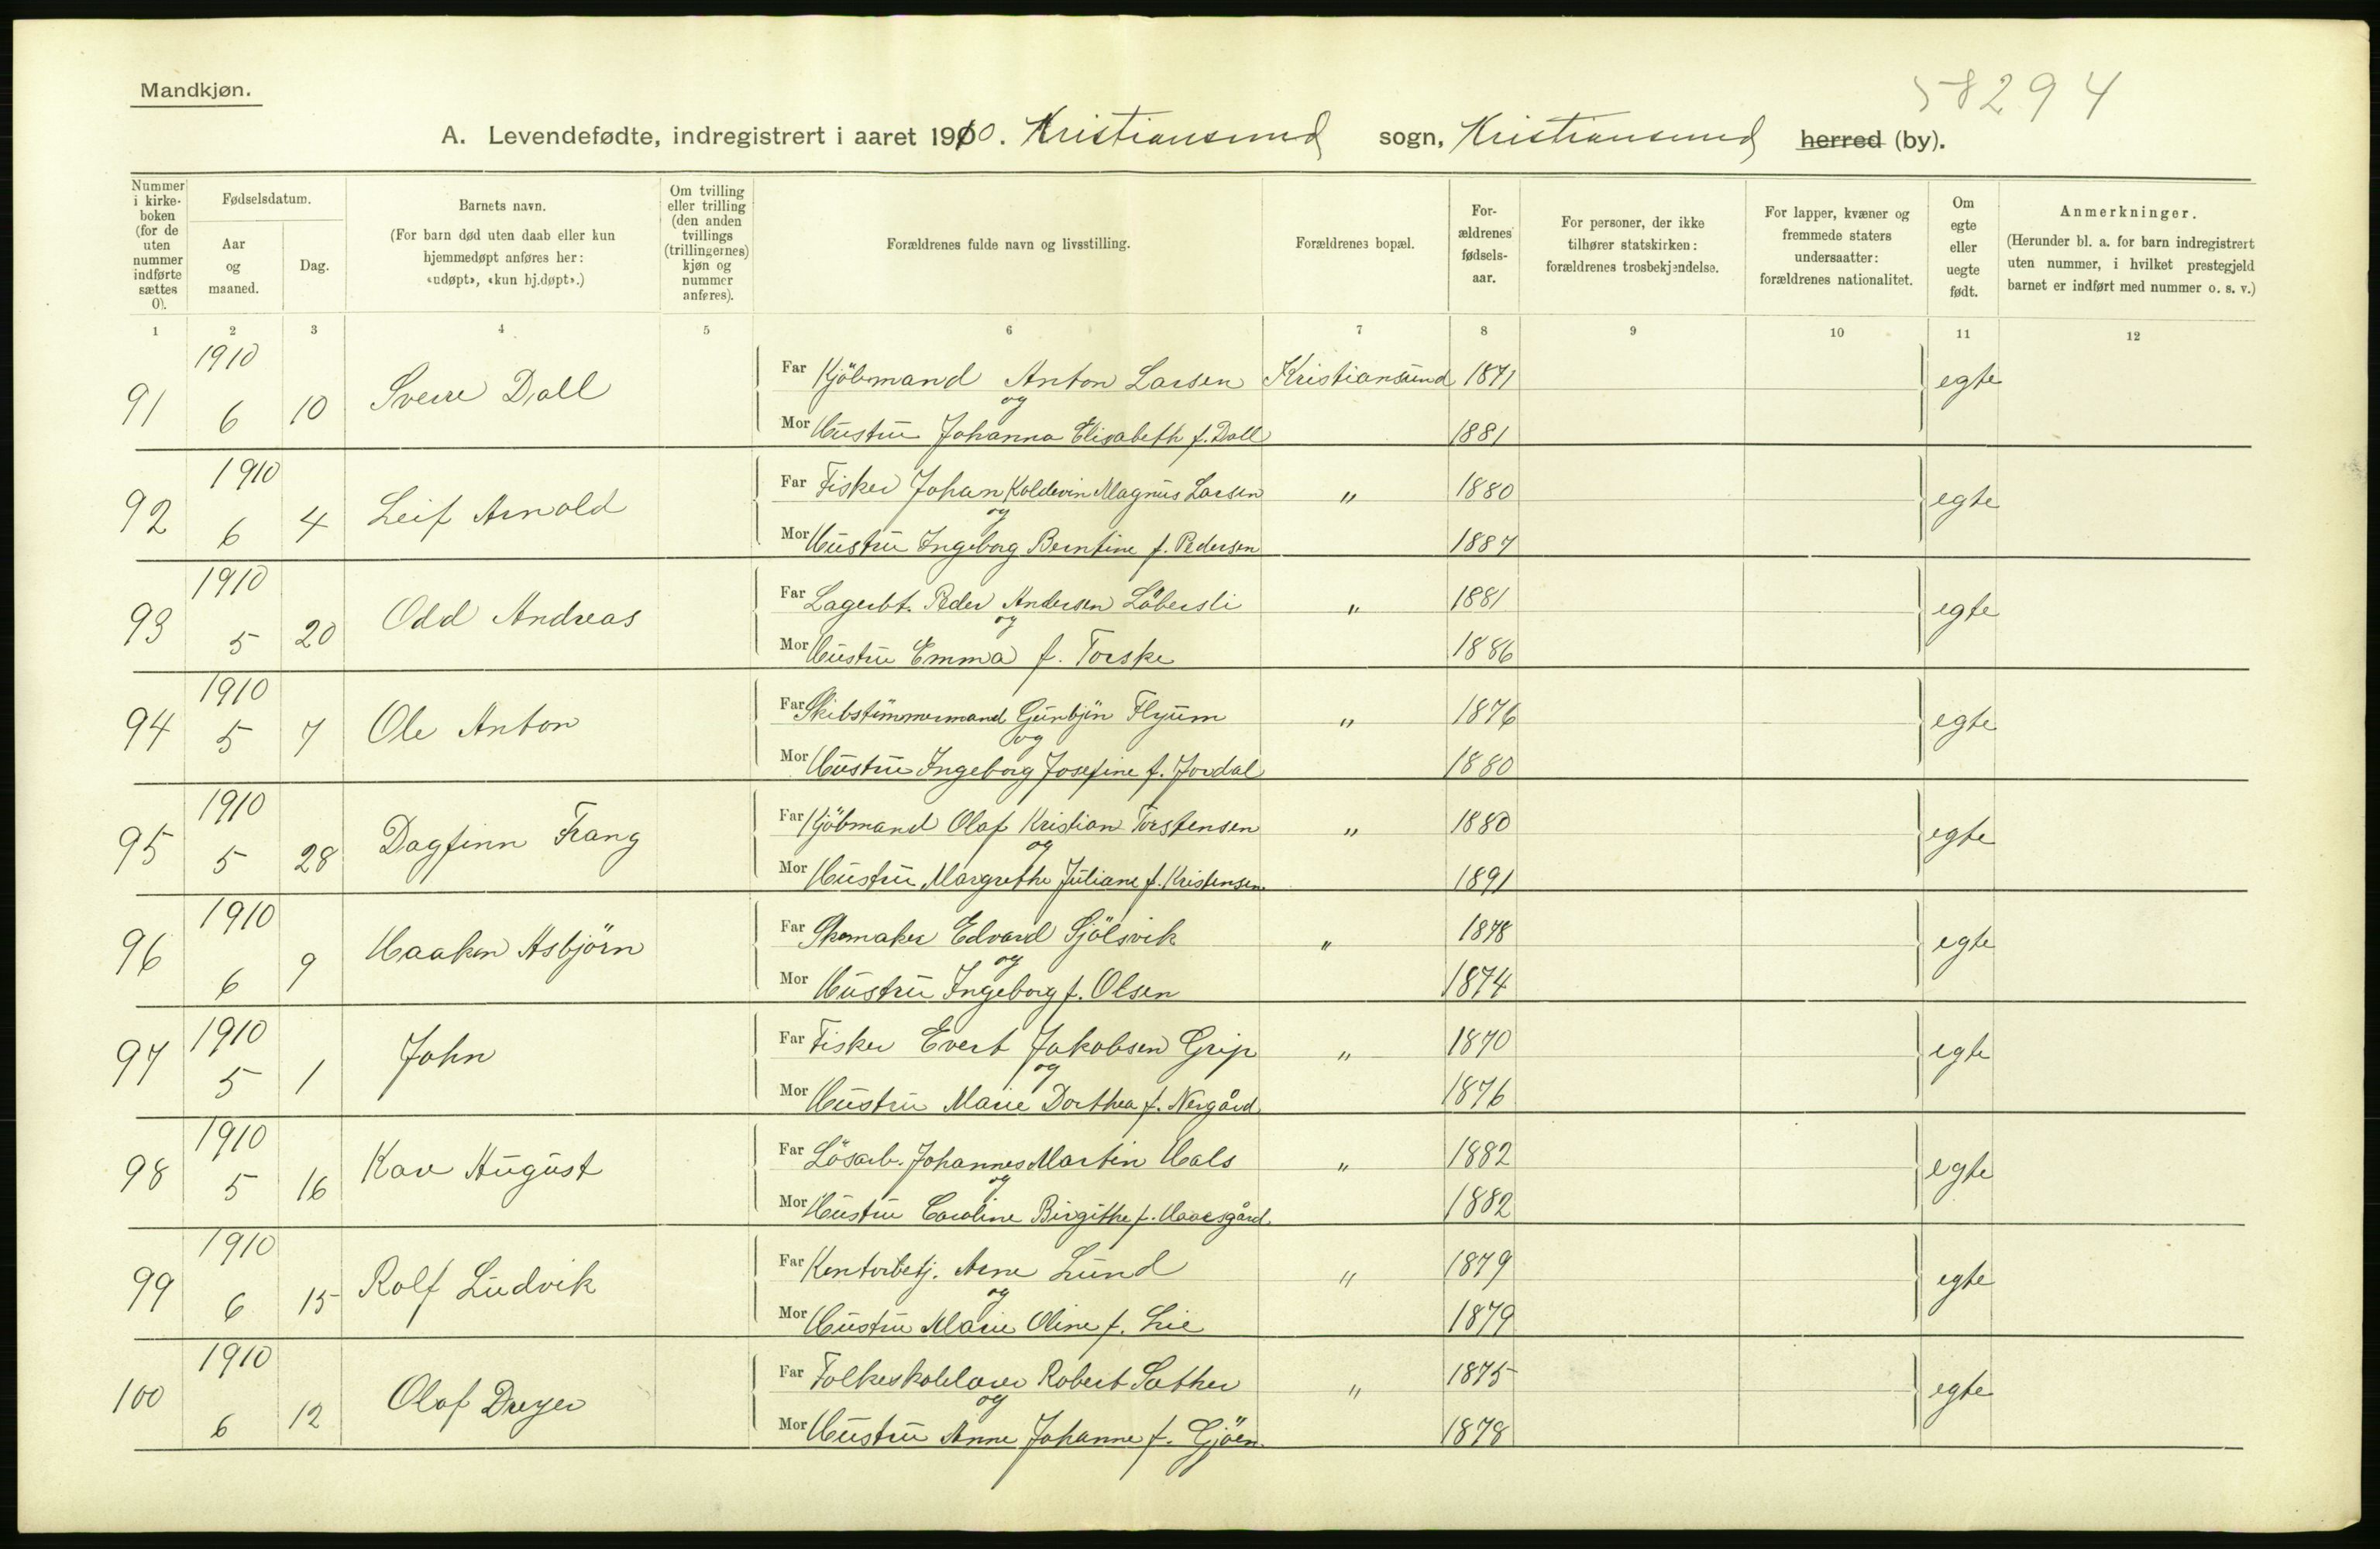 Mandkjøn.
58294
A. Levendefødte, indregistrert i aaret 1910. Kristiansund sogn, Kristiansund herred (by).
Nummer i kirke-boken (for de uten nummer indførte sættes 0).
Fødselsdatum.
Aar og maaned.
Dag.
Barnets navn.
(For barn død uten daab eller kun hjemmedøpt anføres her: «udøpt», «kun hj.døpt».)
Om tvilling eller trilling (den anden tvillings (trillingernes) kjøn og nummer anføres).
Forældrenes fulde navn og livsstilling.
Forældrenes bopæl.
For-ældrenes fødsels-aar.
For personer, der ikke tilhører statskirken: forældrenes trosbekjendelse.
For lapper, kvæner og fremmede staters undersaatter: forældrenes nationalitet.
Om egte eller uegte født.
Anmerkninger.
(Herunder bl. a. for barn indregistrert uten nummer, i hvilket prestegjeld barnet er indført med nummer o. s. v.)
1 2 3 4 5 6 7 8 9 10 11 12
1910
91 6 10 Sverre Dall Far Kjöbmand Anton Larsen Kristiansund 1871 egte
og
Mor Hustru Johanna Elisabeth f. Dall 1881
1910
92 6 4 Leif Arnold Far Fisker Johan Koldevin Magnus Larsen " 1880 egte
og
Mor Hustru Ingeborg Berntine f. Pedersen 1887
1910
93 5 20 Odd Andreas Far Lagerbt. Peder Andersen Löbersli " 1881 egte
og
Mor Hustru Emma f. Torske 1886
1910
94 5 7 Ole Anton Far Skibstömmermand Gunbjön Flyum " 1876 egte
og
Mor Hustru Ingeborg Josefine f. Jordal 1880
1910
95 5 28 Dagfinn Frang Far Kjöbmand Olaf Kristian Torstensen " 1880 egte
og
Mor Hustru Margrethe Juliane f. Kristensen 1891
1910
96 6 9 Haakon Asbjörn Far Skomaker Edvard Sjölsvik " 1878 egte
og
Mor Hustru Ingeborg f. Olsen 1874
1910
97 5 1 John Far Fisker Evert Jakobsen Grip " 1870 egte
og
Mor Hustru Marie Dorthea f. Nergård 1876
1910
98 5 16 Kaare August Far Lösarb. Johannes Martin Hals " 1882 egte
og
Mor Hustru Caroline Birgithe f. 1882
1910
99 6 15 Rolf Ludvik Far Kontorbetj. Arne Lund " 1879 egte
og
Mor Hustru Marie Oline f. Lie 1879
1910
100 6 12 Olaf Dreyer Far Folkeskolelærer Robert Sæther " 1875 egte
og
Mor Hustru Anne Johanne f. Gjöen 1878